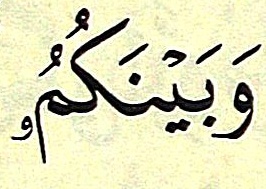 وَبَيْنَكُمُۥ